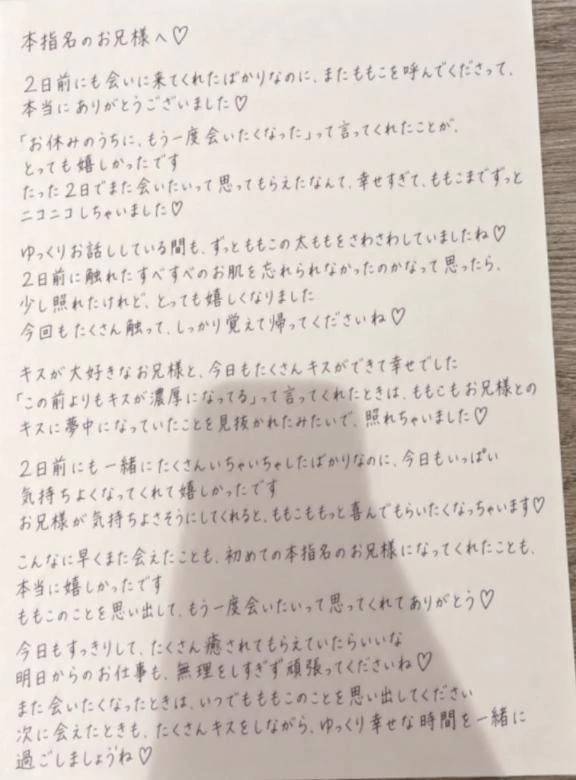 本指名のお兄様へ♡
2日前にも会いに来てくれたばかりなのに、またももこを呼んでくださって、
本当にありがとうございました♡
「お休みのうちに、もう一度会いたくなった」って言ってくれたことが、
とっても嬉しかったです
たった2日でまた会いたいって思ってもらえたなんて、幸せすぎて、ももこまでずっと
ニコニコしちゃいました♡
ゆっくりお話ししている間も、ずっとももこの太ももをさわさわしていましたね♡
2日前に触れたすべすべのお肌を忘れられなかったのかなって思ったら、
少し照れたけれど、とっても嬉しくなりました
今回もたくさん触って、しっかり覚えて帰ってくださいね♡
キスが大好きなお兄様と、今日もたくさんキスができて幸せでした
「この前よりもキスが濃厚になってる」って言ってくれたときは、ももこもお兄様との
キスに夢中になっていたことを見抜かれたみたいで、照れちゃいました♡
2日前にも一緒にたくさんいちゃいちゃしたばかりなのに、今日もいっぱい
気持ちよくなってくれて嬉しかったです
お兄様が気持ちよさそうにしてくれると、ももこももっと喜んでもらいたくなっちゃいます♡
こんなに早くまた会えたことも、初めての本指名のお兄様になってくれたことも、
本当に嬉しかったです
ももこのことを思い出して、もう一度会いたいって思ってくれてありがとう♡
今日もすっきりして、たくさん癒されてもらえていたらいいな
明日からのお仕事も、無理をしすぎず頑張ってくださいね♡
また会いたくなったときは、いつでもももこのことを思い出してください
次に会えたときも、たくさんキスをしながら、ゆっくり幸せな時間を一緒に
過ごしましょうね♡